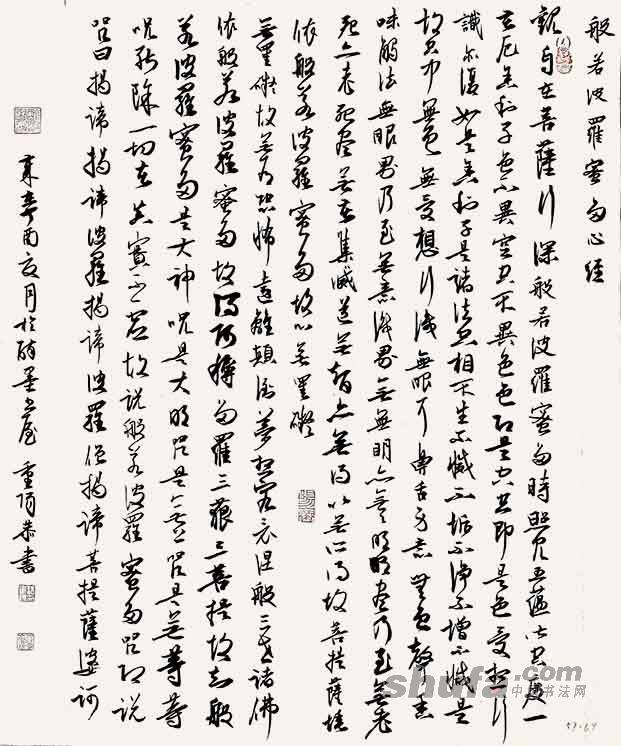 般若波羅蜜多心經
觀自在菩薩行深般若波羅蜜多時照見五蘊皆空度一
切苦厄舍利子色不異空空不異色色即是空空即是色受想行
識亦復如是舍利子是諸法空相不生不滅不垢不淨不增不減是
故空中無色無受想行識無眼耳鼻舌身意無色聲香
味觸法無眼界乃至無意識界無無明亦無無明盡乃至無老
死亦無老死盡無苦集滅道無智亦無得以無所得故菩提薩埵
依般若波羅蜜多故心無罣礙
無罣礙故無有恐怖遠離顛倒夢想究竟涅槃三世諸佛
依般若波羅蜜多故得阿耨多羅三藐三菩提故知般
若波羅蜜多是大神咒是大明咒是無上咒是無等等
咒能除一切苦真實不虛故說般若波羅蜜多咒即說
咒曰揭諦揭諦波羅揭諦波羅僧揭諦菩提薩婆訶
辛酉 月於 墨 屋 書
shufa.com
中国书法网